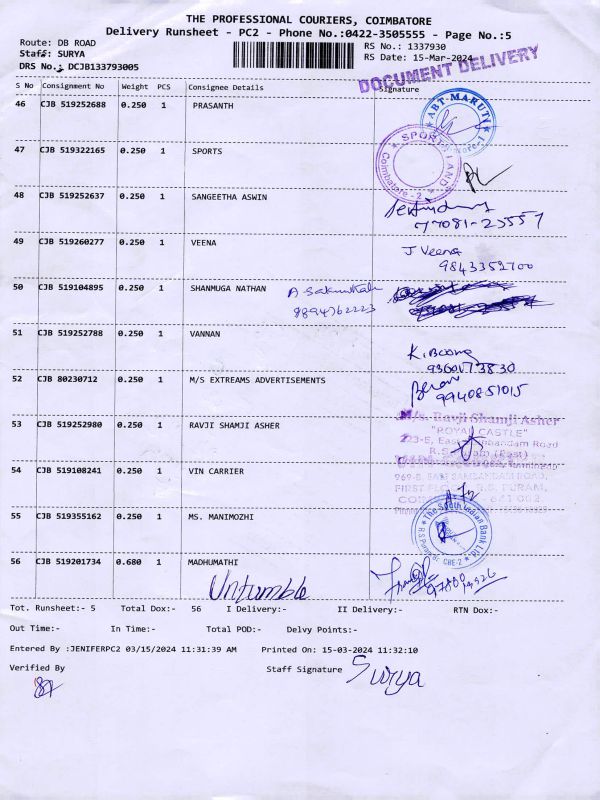 THE PROFESSIONAL COURIERS, COIMBATORE
Delivery Runsheet - PC2 - Phone No.:0422-3505555 - Page No.:5
Route: DB ROAD
RS No.: 1337930
Staff: SURYA
RS Date: 15-Mar-2024
DRS No.: DCJB133793005
DOCUMENT DELIVERY
S No Consignment No Weight PCS Consignee Details Signature
46 CJB 519252688 0.250 1 PRASANTH
ABT-MARUTI
47 CJB 519322165 0.250 1 SPORTS
SPORTS LAND
Coimbatore-2
48 CJB 519252637 0.250 1 SANGEETHA ASWIN
77081-23557
49 CJB 519260277 0.250 1 VEENA
J Veena
9843352700
50 CJB 519104895 0.250 1 SHANMUGA NATHAN
A Sakunthala
9894762223
51 CJB 519252788 0.250 1 VANNAN
52 CJB 80230712 0.250 1 M/S EXTREAMS ADVERTISEMENTS
9940851015
53 CJB 519252980 0.250 1 RAVJI SHAMJI ASHER
M/s. Ravji Shamji Asher
"ROYAL CASTLE"
223-E, East Sambandam Road
54 CJB 519108241 0.250 1 VIN CARRIER
969-B, EAST SAMBANDAM ROAD,
55 CJB 519355162 0.250 1 MS. MANIMOZHI
The South Indian Bank Ltd.
R.S. Puram Br. CBE-2
56 CJB 519201734 0.680 1 MADHUMATHI
Tot. Runsheet:- 5 Total Dox:- 56 I Delivery:- II Delivery:- RTN Dox:-
Out Time:- In Time:- Total POD:- Delvy Points:-
Entered By :JENIFERPC2 03/15/2024 11:31:39 AM Printed On: 15-03-2024 11:32:10
Verified By Staff Signature Surya